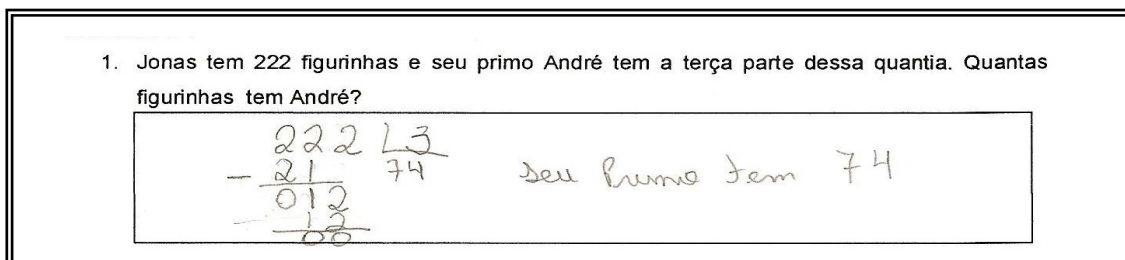 1. Jonas tem 222 figurinhas e seu primo André tem a terça parte dessa quantia. Quantas
figurinhas tem André?
222 3
- 21 74
012
- 12
00
seu Primo tem 74